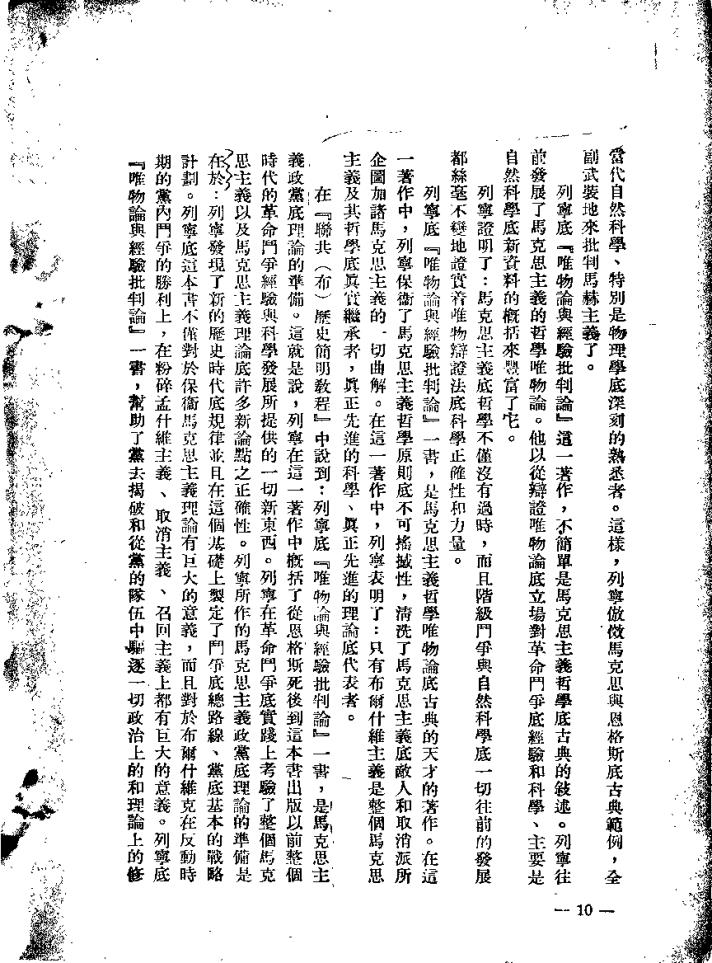 當代自然科學、特別是物理學底深刻的熟悉者。這樣，列寧倣傚馬克思與恩格斯底古典範例，全
副武裝地來批判馬赫主義了。
列寧底『唯物論與經驗批判論』這一著作，不簡單是馬克思主義哲學底古典的敍述。列寧往
前發展了馬克思主義的哲學唯物論。他以從辯證唯物論底立場對革命鬥爭底經驗和科學、主要是
自然科學底新資料的概括來豐富了它。
列寧證明了：馬克思主義底哲學不僅沒有過時，而且階級鬥爭與自然科學底一切往前的發展
都絲毫不變地證實着唯物辯證法底科學正確性和力量。
列寧底『唯物論與經驗批判論』一書，是馬克思主義哲學唯物論底古典的天才的著作。在這
一著作中，列寧保衛了馬克思主義哲學原則底不可搖撼性，清洗了馬克思主義底敵人和取消派所
企圖加諸馬克思主義的一切曲解。在這一著作中，列寧表明了：只有布爾什維主義是整個馬克思
主義及其哲學底眞實繼承者，眞正先進的科學、眞正先進的理論底代表者。
在『聯共（布）歷史簡明敎程』中說到：列寧底『唯物論與經驗批判論』一書，是馬克思主
義政黨底理論的準備。這就是說，列寧在這一著作中概括了從恩格斯死後到這本書出版以前整個
時代的革命鬥爭經驗與科學發展所提供的一切新東西。列寧在革命鬥爭底實踐上考驗了整個馬克
思主義以及馬克思主義理論底許多新論點之正確性。列寧所作的馬克思主義政黨底理論的準備是
在於：列寧發現了新的歷史時代底規律並且在這個基礎上製定了鬥爭底總路線、黨底基本的戰略
計劃。列寧底這本書不僅對於保衛馬克思主義理論有巨大的意義，而且對於布爾什維克在反動時
期的黨內鬥爭的勝利上，在粉碎孟什維主義、取消主義、召回主義上都有巨大的意義。列寧底
『唯物論與經驗批判論』一書，幫助了黨去揭破和從黨的隊伍中驅逐一切政治上的和理論上的修
— 10 —